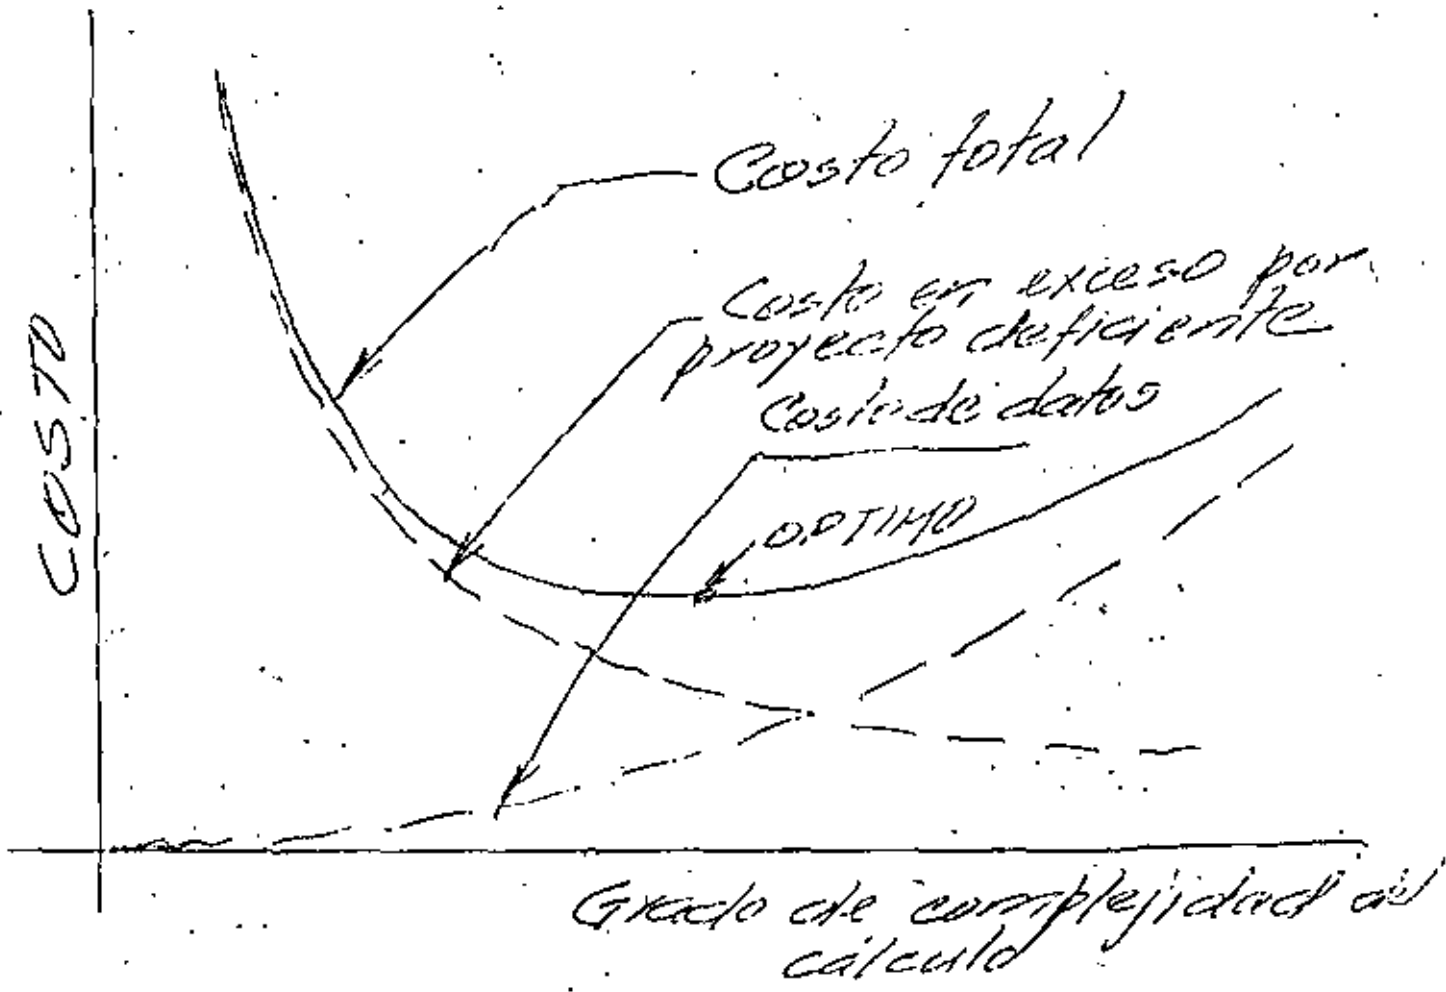 Costo total
Costo en exceso por
proyecto deficiente
Costo de datos
OPTIMO
COSTO
Grado de complejidad del
cálculo